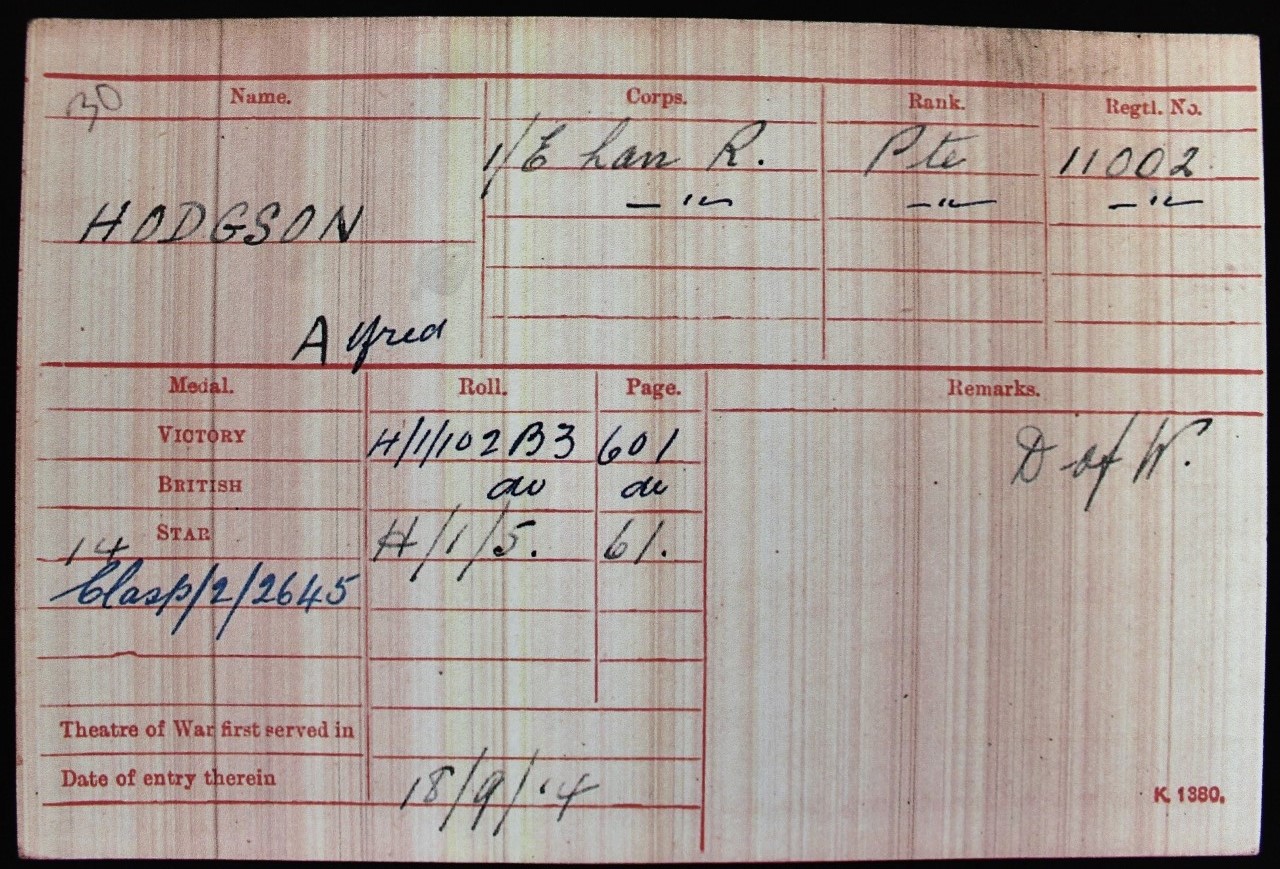 30
Name. Corps. Rank. Regtl. No.
1/E Lan R. Pte 11002
— " — — " — — " —
HODGSON
Alfred
Medal. Roll. Page. Remarks.
VICTORY H/1/102 B3 601 D of W.
BRITISH do do
14 STAR H/1/5. 61.
Clasp/2/2645
Theatre of War first served in
Date of entry therein 18/9/14
K. 1380.